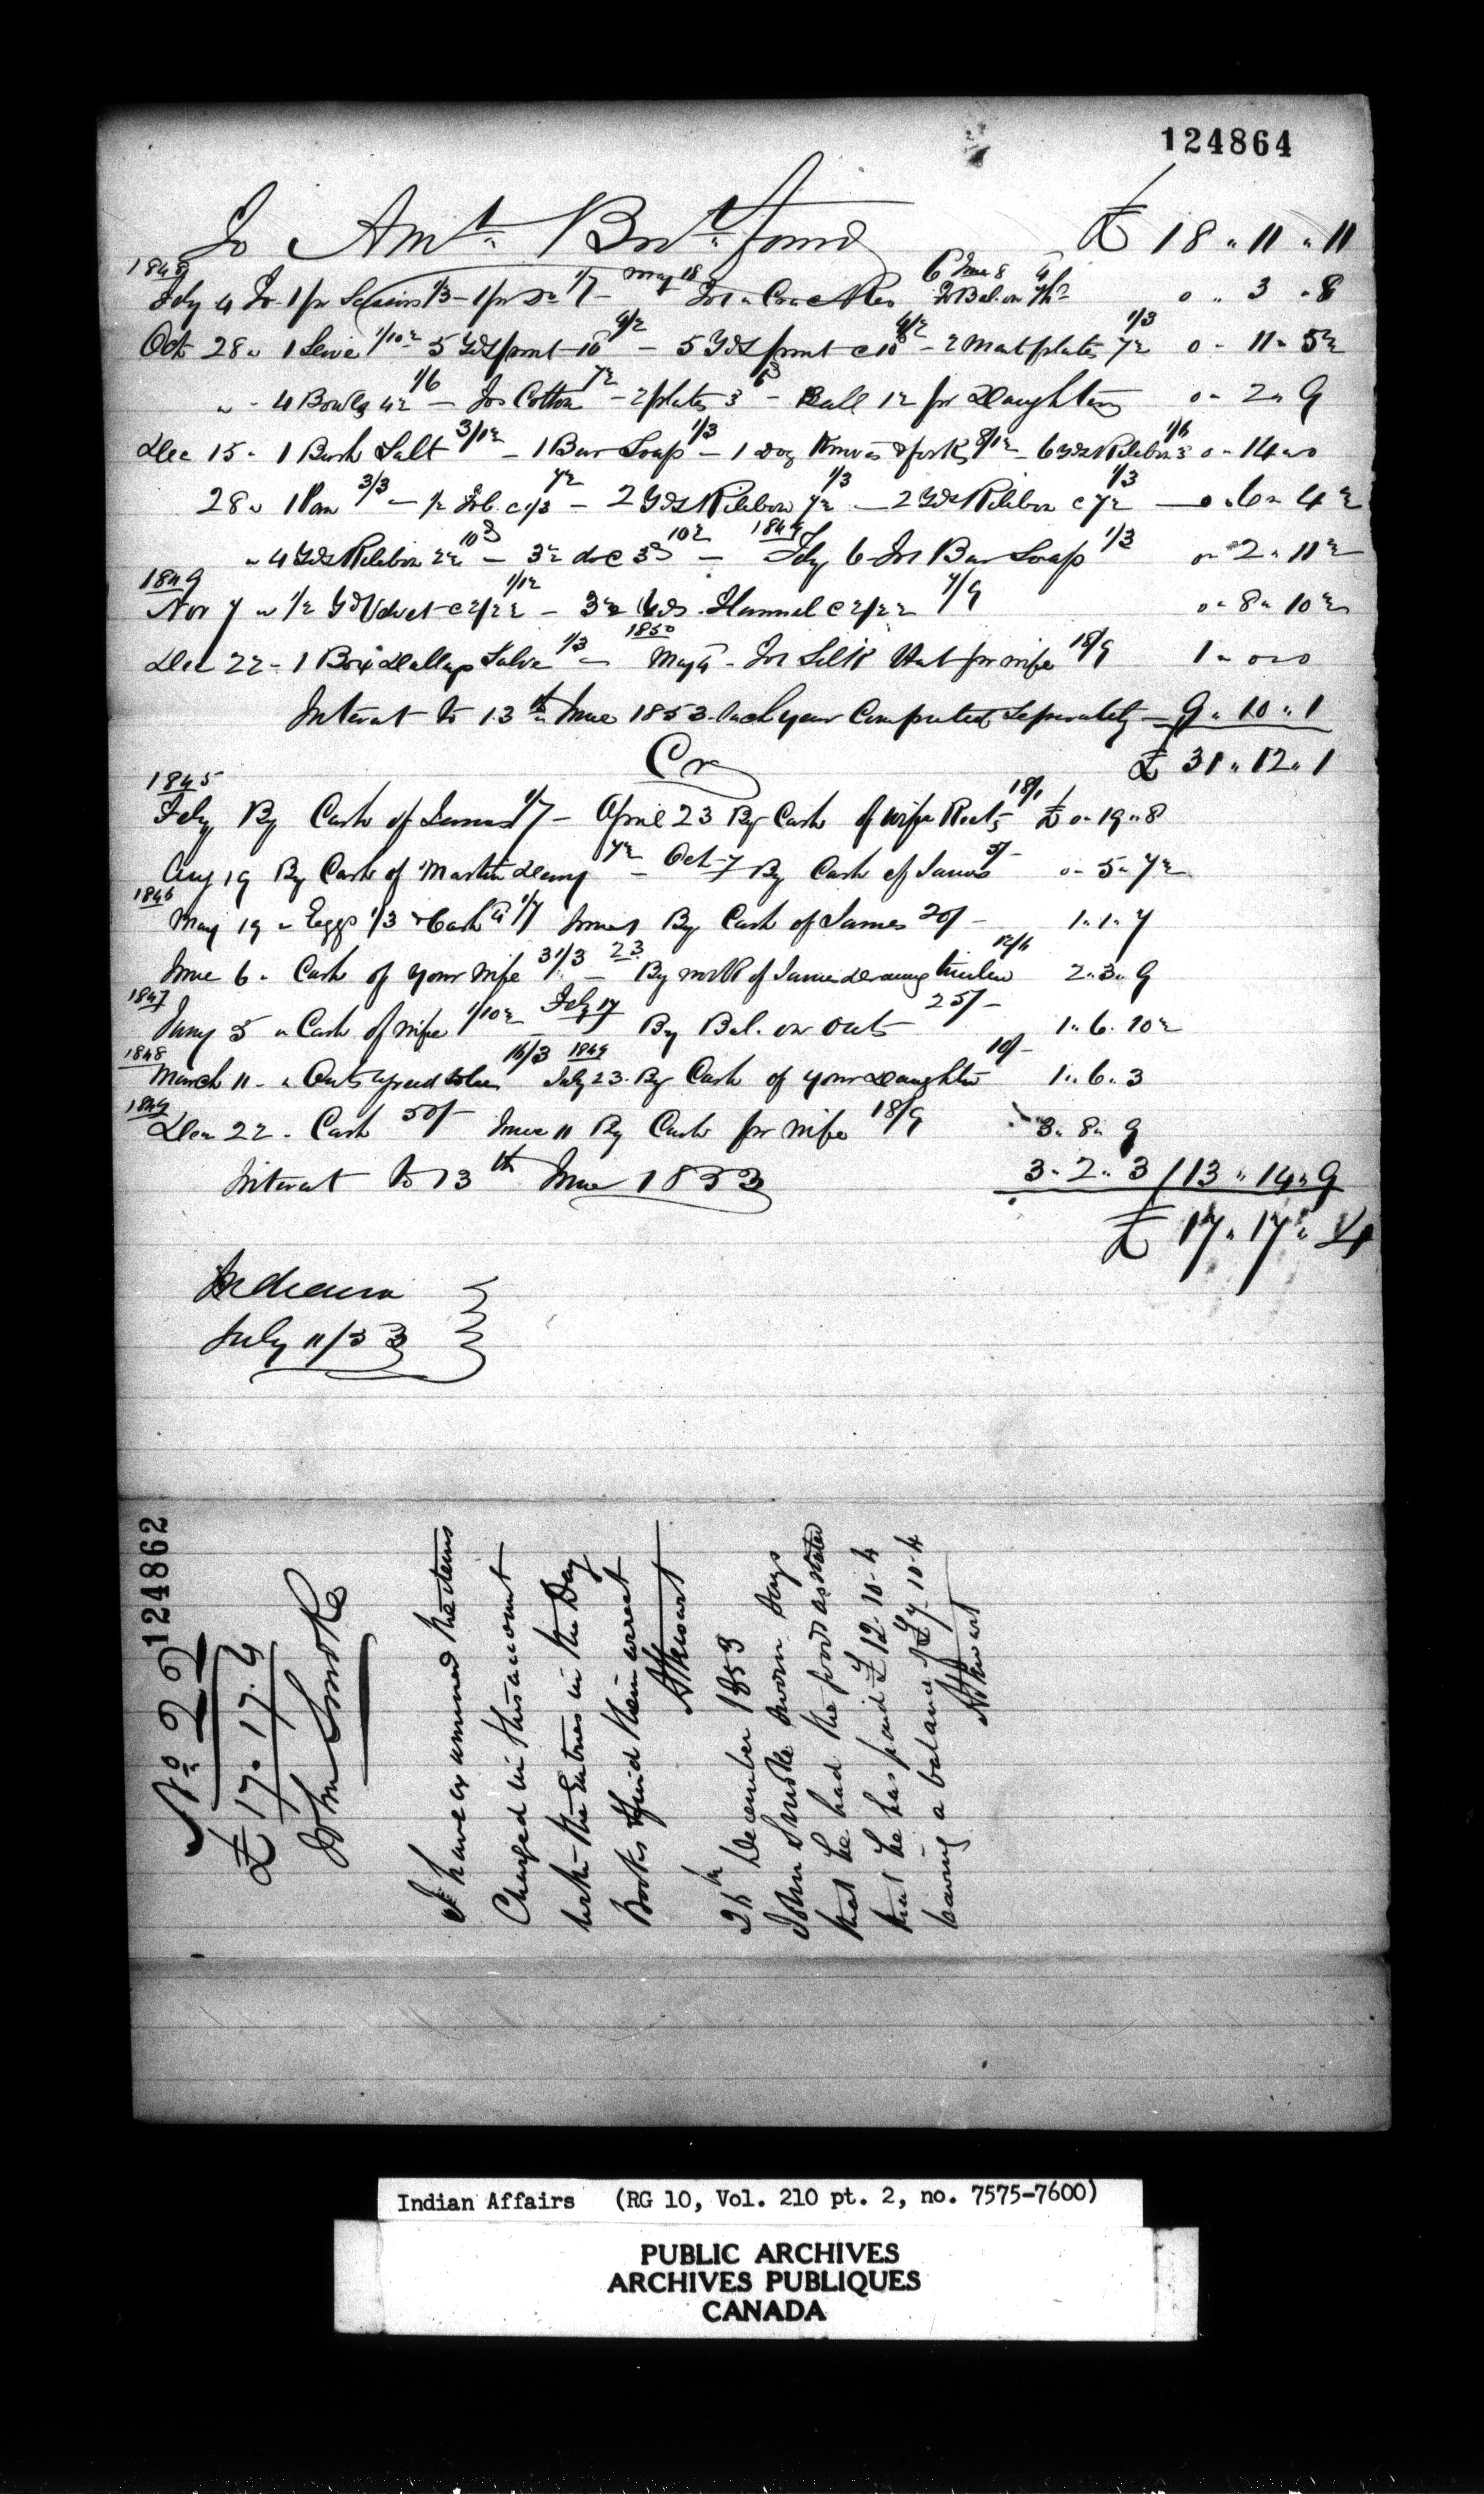 124864
To Amt. Brot. ford £ 18 " 11 " 11
1848
July 4 To 1 pr Scissors 1/3 - 1 pr Do 1/7 - May 18 To 1 " Crackers 6 June 8 To Bal. on 4d 0 " 3 " 8
Oct 28 " 1 Seive 1/10½ 5 Yds print 10d 4/2 - 5 Yds print c 10d 4/2 - 2 Meat plates 7½ 1/3 0 " 11 " 5½
" - 4 Bowls 4½ 1/6 - To Cotton 7½ - 2 plates 3 6d - Ball 1½ pr Daughter 0 " 2 " 9
Dec 15 " 1 Bush Salt 3/1½ - 1 Bar Soap 1/3 - 1 Doz Knives & forks 8/1½ - 6 Yds Ribbon 3 1/6 0 " 14 " 0
28 " 1 Pan 3/3 - ½ lb. c 1/3 7½ - 2 Yds Ribbon 7½ 1/3 - 2 Yds Ribbon c 7½ 1/3 - 0 " 6 " 4½
" 4 Yds Ribbon 2½ 10d - 3½ do c 3d 10½ - 1849 July 6 To 1 Bar Soap 1/3 0 " 2 " 11½
1849
Nov 7 " ½ Yd Velvet c 2/2½ 1/1½ - 3½ Yds Flannel c 2/2½ 7/9 0 " 8 " 10½
Dec 22 - 1 Box Dalleys Salve 1/3 - 1850 May 4 - To 1 Silk Hat for wife 18/9 1 " 0 " 0
Interest to 13th June 1853 each year Computed Seperately - 9 " 10 " 1
£ 31 " 12 " 1
Cr
1845
Feby By Cash of James 1/7 - April 23 By Cash of wife 18/1 £ 0 " 19 " 8
Aug 19 By Cash of Martin Deming 7½ - Oct 7 By Cash of James 5/- 0 " 5 " 7½
1846
May 19 " Eggs 1/3 & Cash 1/7 By Cash of James 20/- 1 " 1 " 7
June 6 " Cash of your wife 31/3 - 23 By work of James 12/6 2 " 3 " 9
1847
Jany 5 " Cash of wife 1/10½ - Feby 17 By Bal. on Oats 25/- 1 " 6 " 10½
1848
March 11 " " Oats 16/3 1849 July 23 By Cash of your Daughter 10/- 1 " 6 " 3
1849
Dec 22 " Cash 50/- June 11 By Cash pr wife 18/9 3 " 8 " 9
Interest to 13th June 1853 3 " 2 " 3 / 13 " 14 " 9
£ 17 " 17 " 4
Indiana
July 11/53
124862
No 22
£ 17 " 17 " 4
John Smoke
I have examined the items
Charged in this account
with the Entries in the Day
Books & find them correct
A Stewart
26th December 1853
John Smoke sworn says
that he had the goods as stated
that he has paid £ 12.10.4
leaving a balance of £ 7.10.4
A Stewart
Indian Affairs (RG 10, Vol. 210 pt. 2, no. 7575-7600)
PUBLIC ARCHIVES
ARCHIVES PUBLIQUES
CANADA